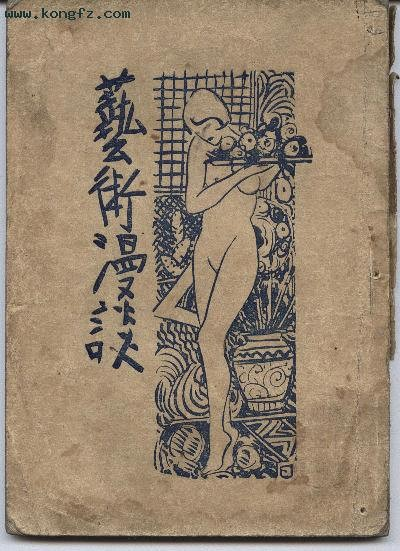 www.kongfz.com
藝術漫談